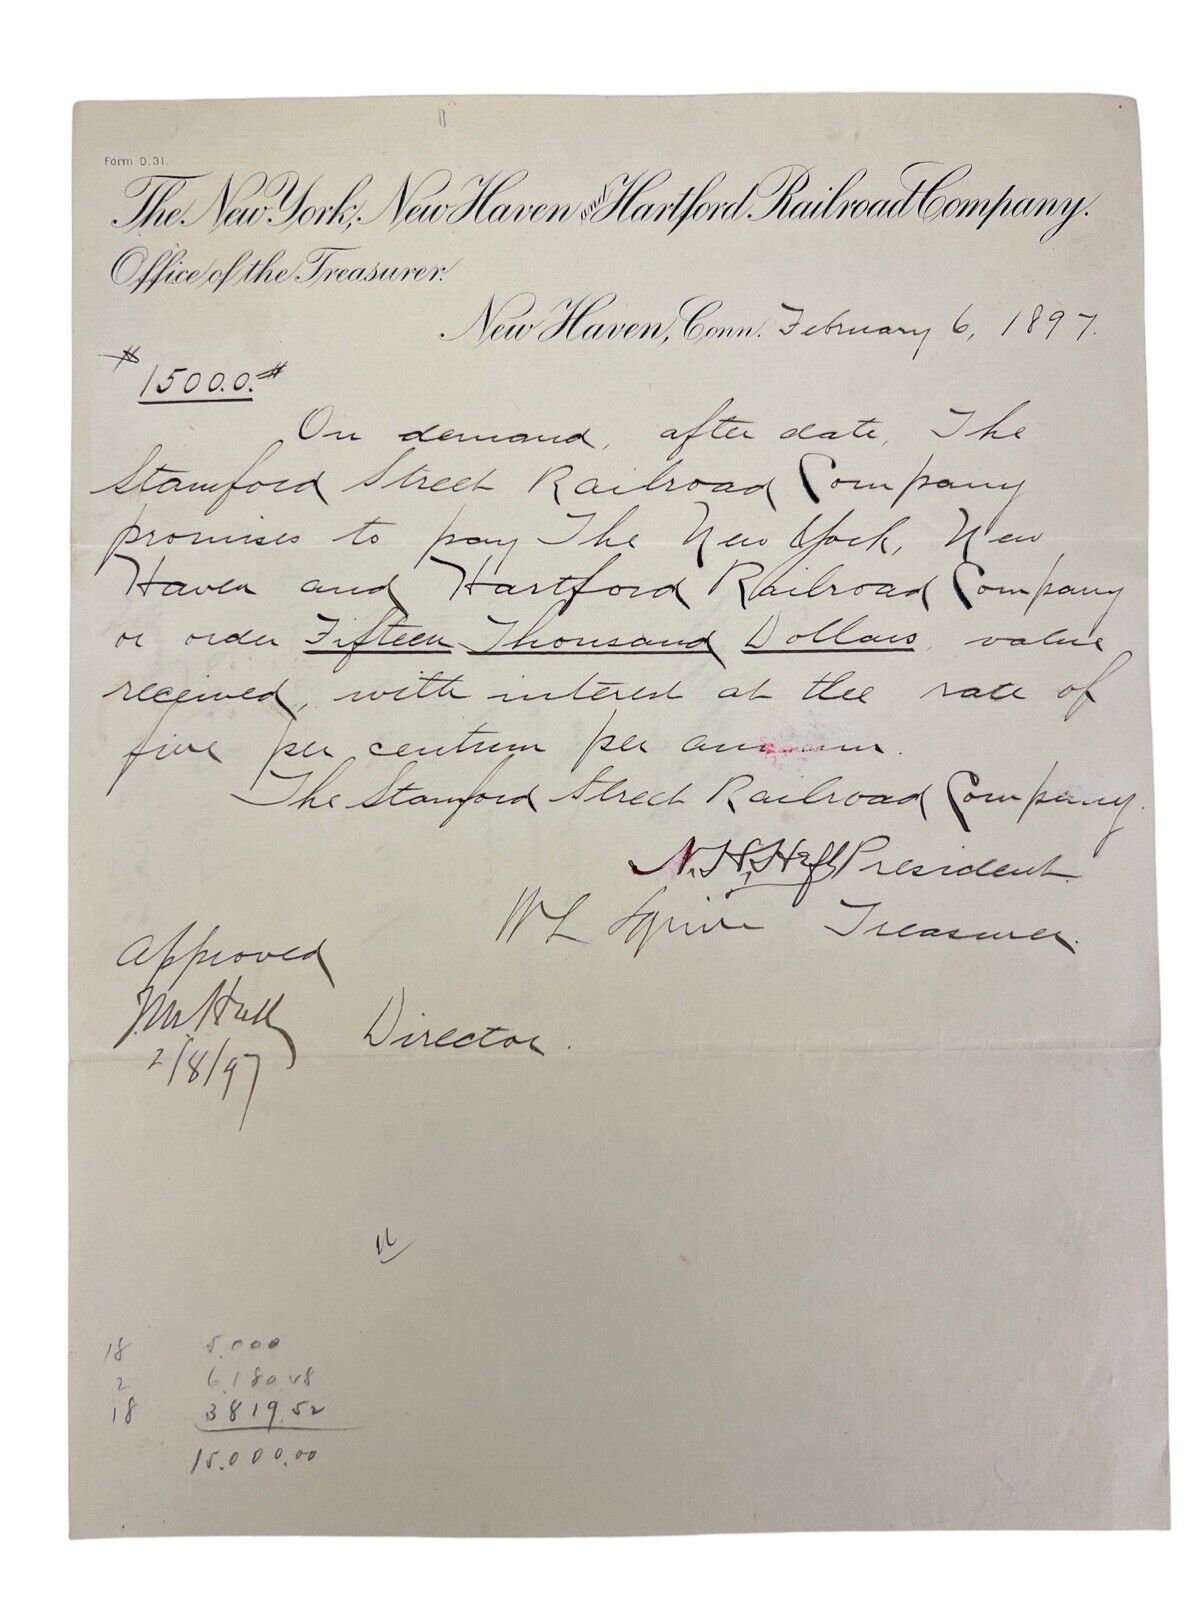 Form D.31.
The New York, New Haven and Hartford Railroad Company.
Office of the Treasurer.
New Haven, Conn. February 6, 1897.
#15000.#
On demand, after date, The
Stamford Street Railroad Company
promises to pay The New York, New
Haven and Hartford Railroad Company
or order Fifteen Thousand Dollars, value
received, with interest at the rate of
five per centum per annum.
The Stamford Street Railroad Company.
N.H. Heft President.
W L Squire Treasurer.
Approved
J.M. Hall Director.
2/8/97
16
18 5,000
2 6,180.48
18 3819.52
15,000.00